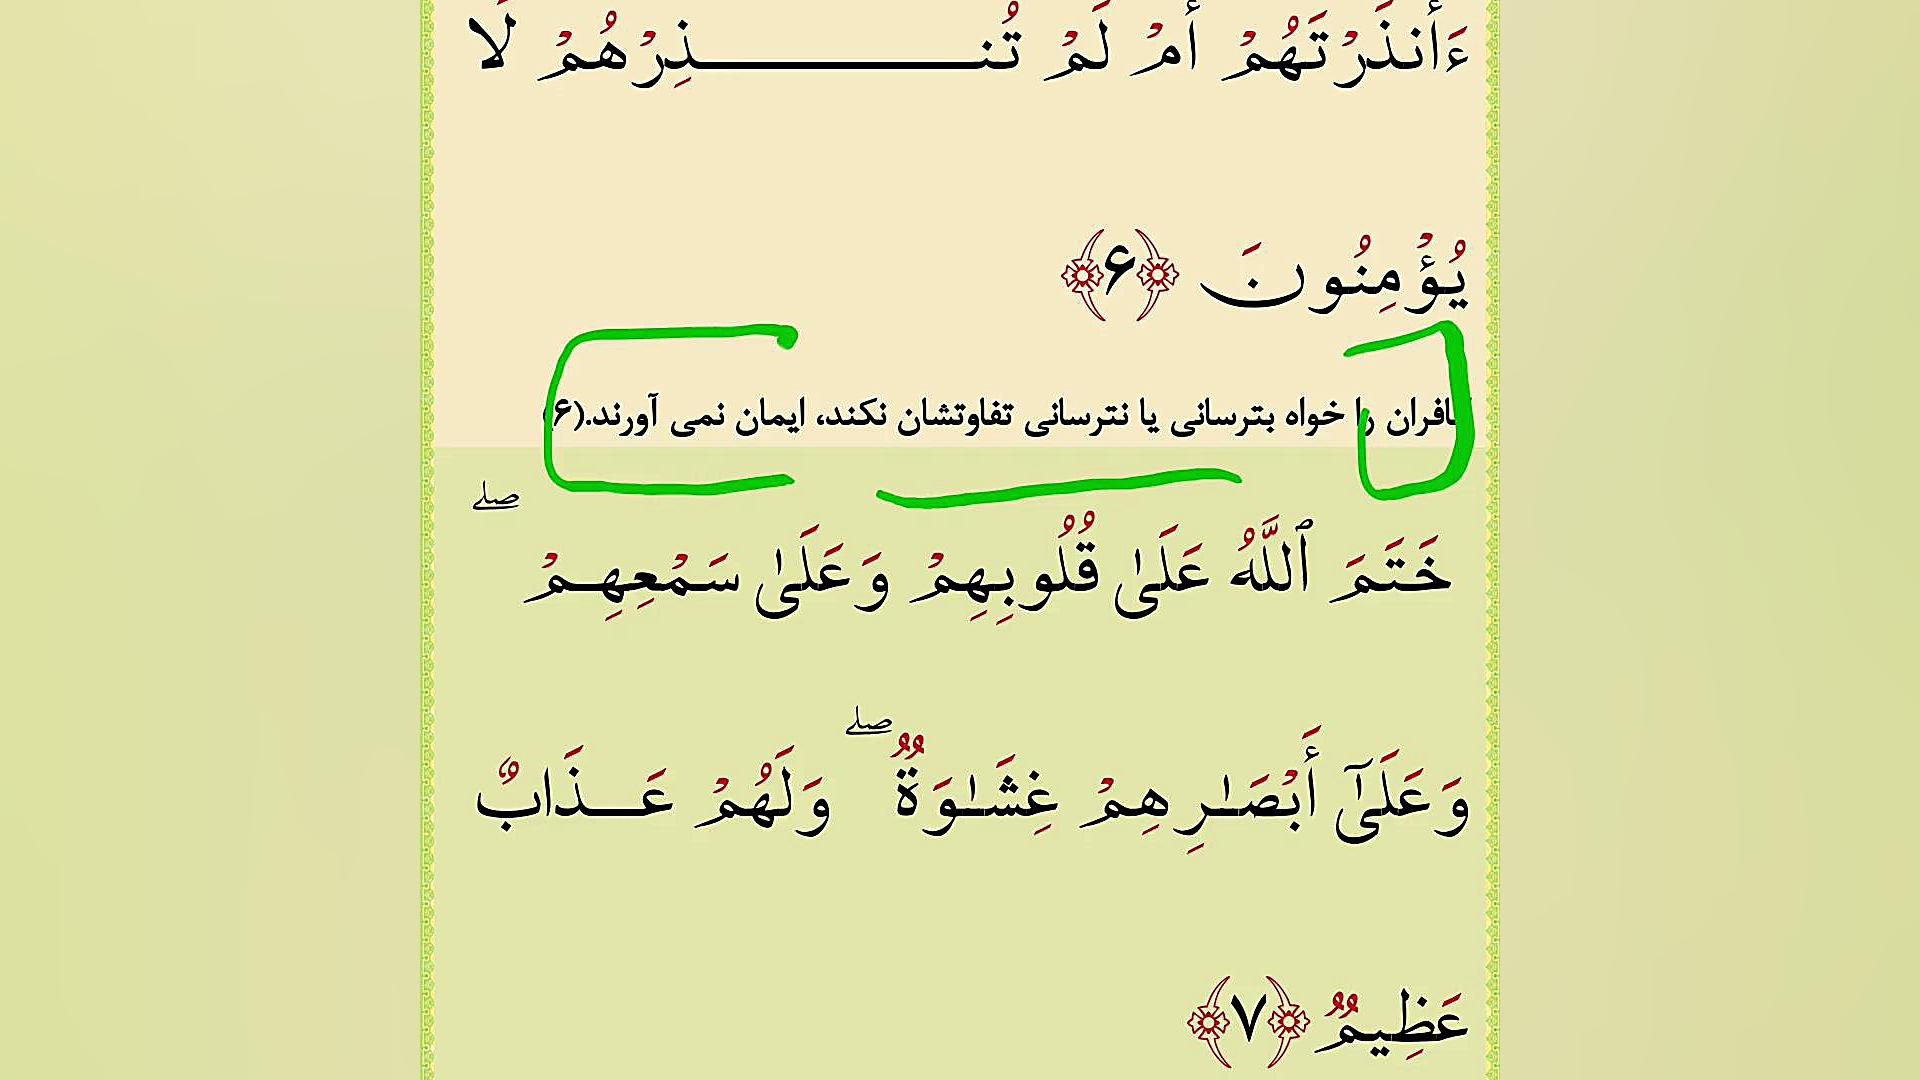 ءَأَنذَرْتَهُمْ أَمْ لَمْ تُنــــذِرْهُمْ لَا
يُؤْمِنُونَ ﴿۶﴾
کافران را خواه بترسانی یا نترسانی تفاوتشان نکند، ایمان نمی آورند.(۶)
خَتَمَ ٱللَّهُ عَلَىٰ قُلُوبِهِمْ وَعَلَىٰ سَمْعِهِمْ ۖ
وَعَلَىٰٓ أَبْصَـٰرِهِمْ غِشَـٰوَةٌ ۖ وَلَهُمْ عَــذَابٌ
عَظِيمٌ ﴿۷﴾